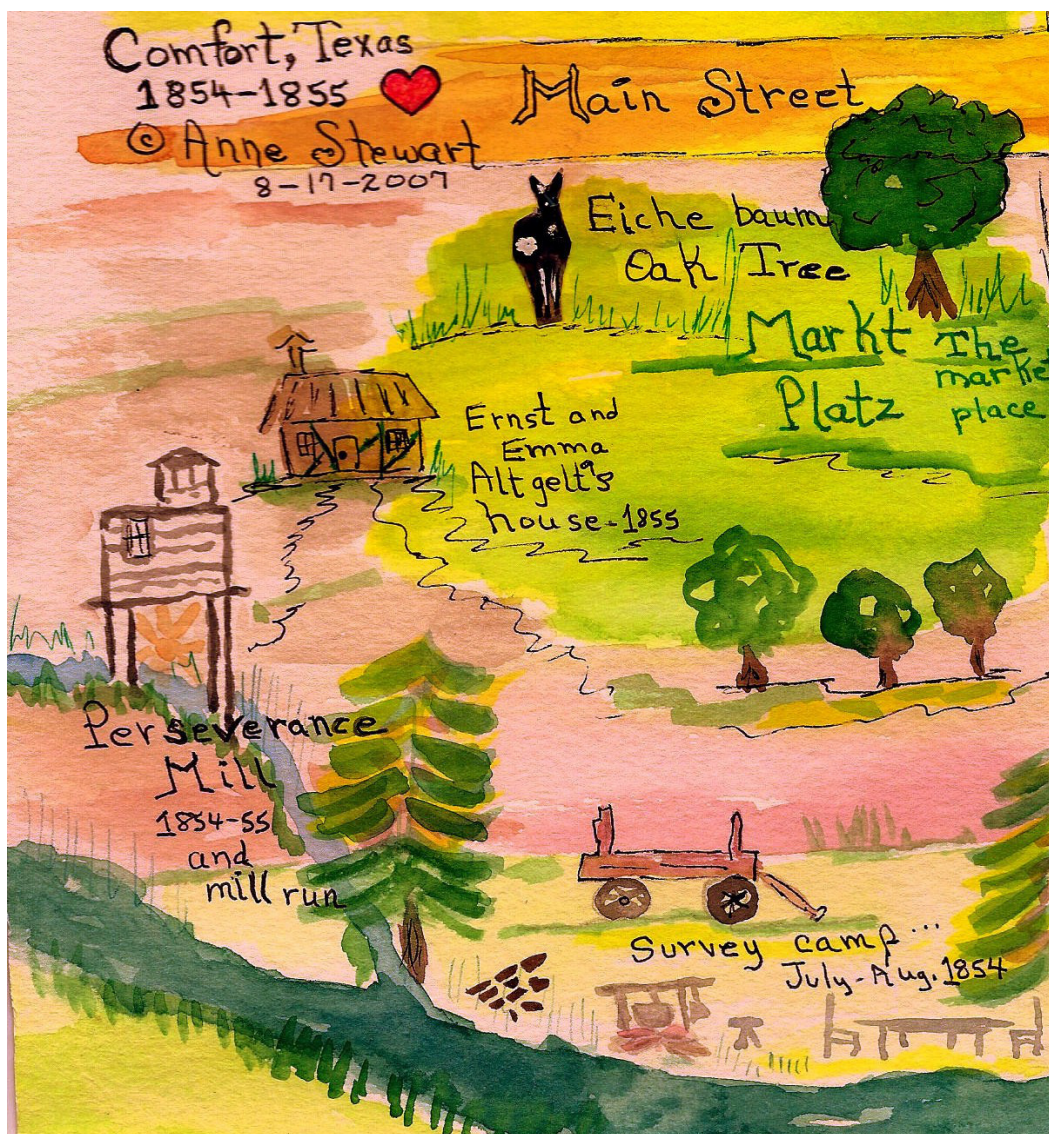 Comfort, Texas
1854-1855
© Anne Stewart
8-17-2007
Main Street
Eiche baum
Oak Tree
Markt
Platz
The
market
place
Ernst and
Emma
Altgelt's
house-1855
Perseverance
Mill
1854-55
and
mill run
Survey camp...
July-Aug. 1854